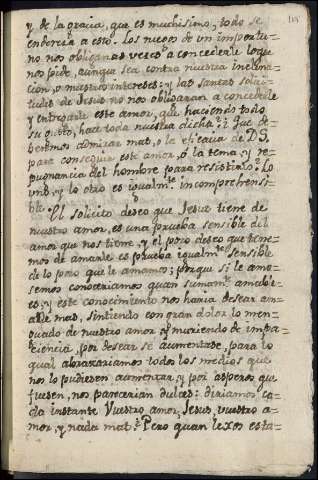 y de la gracia, que es muchisimo, todo se
endereza a esto. Los ruegos de un importu=
no nos obligan a veces a concederle loque
nos pide, aunque sea contra nuestra inclina=
cion, o nuestros intereses: y las santas solici=
tudes de Jesus no nos obligaran a concederle
y entregarle este amor, que haciendo todo
su gusto, hace toda nuestra dicha? Que de=
bemos admirar mas, o la eficacia de DS.
para conseguir este amor, ó la tema, y re=
pugnancia del hombre para resistirlo? Lo
uno, y lo otro es igualmte. incomprehensi=
ble.
El solicito deseo que Jesus tiene de
nuestro amor, es una prueba sensible del
amor que nos tiene, y el poco deseo que tene=
mos de amarle es prueba igualmte. sensible
de lo poco que le amamos; porque si le ama=
semos conoceriamos quan sumamte. amable
es, y este conocimiento nos haria desear am=
arle mas, sintiendo con gran dolor lo men=
guado de nuestro amor, y muriendo de impa=
ciencia, por desear se aumentase, para lo
qual abrazariamos todos los medios que
nos lo pudiesen aumentar, y por asperos que
fuesen, nos parecerian dulces: diriamos ca=
da instante Vuestro amor, Jesus, vuestro a=
mor, y nada mas. Pero quan lexos esta=